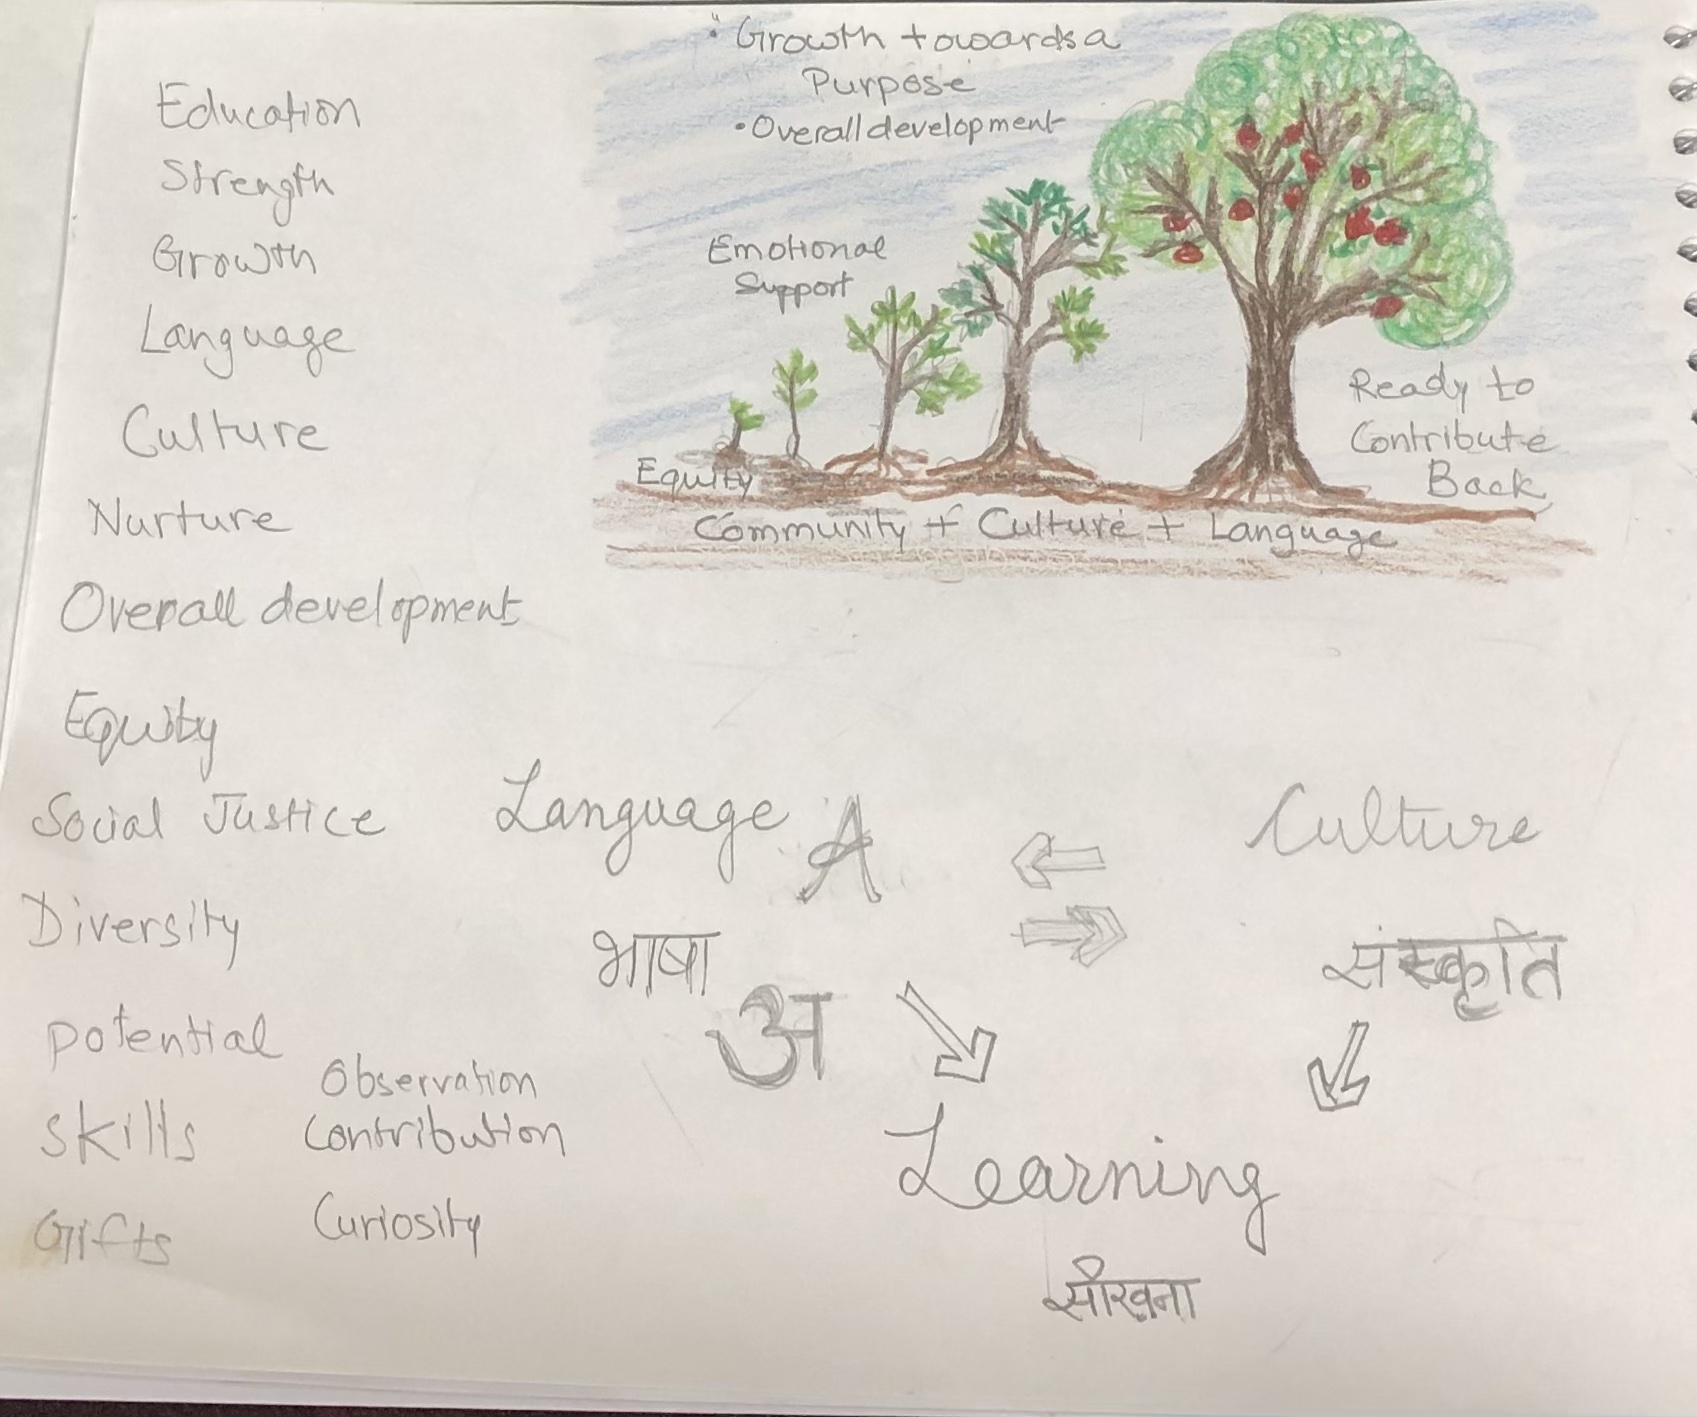 Education
Strength
Growth
Language
Culture
Nurture
Overall development
Equity
Social Justice
Diversity
potential
Skills
Gifts
Observation
Contribution
Curiosity
• Growth towards a
Purpose
• Overall development
Emotional
Support
Ready to
Contribute
Back
Equity
Community + Culture + Language
Language A
भाषा
अ
Culture
संस्कृति
Learning
सीखना